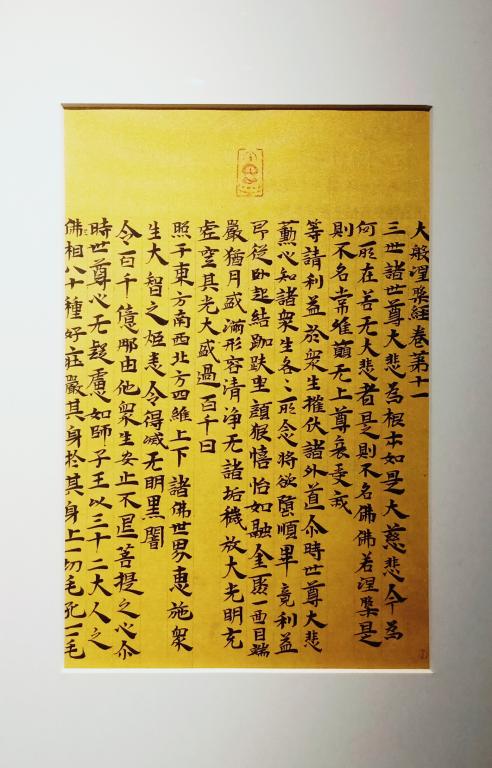 大般涅槃経卷第十一
三世諸世尊大悲為根本如是大慈悲今為
何所在若无大悲者是則不名佛佛若涅槃是
則不名常唯願无上尊哀受我
等請利益於衆生摧伏諸外道尒時世尊大悲
薰心知諸衆生各〻所念將欲随順畢竟利益
即從卧起結跏趺坐顔貌憘怡如融金聚面目端
嚴猶月盛滿形容清淨无諸垢穢放大光明充
虚空其光大盛過一百千日
照于東方南西北方四維上下諸佛世界惠施衆
生大智之炬悉令得滅无明黒闇
令百千億那由他衆生安止不退菩提之心尒
時世尊心无疑慮如師子王以三十二大人之
佛相八十種好庄嚴其身於其身上一切毛孔一毛